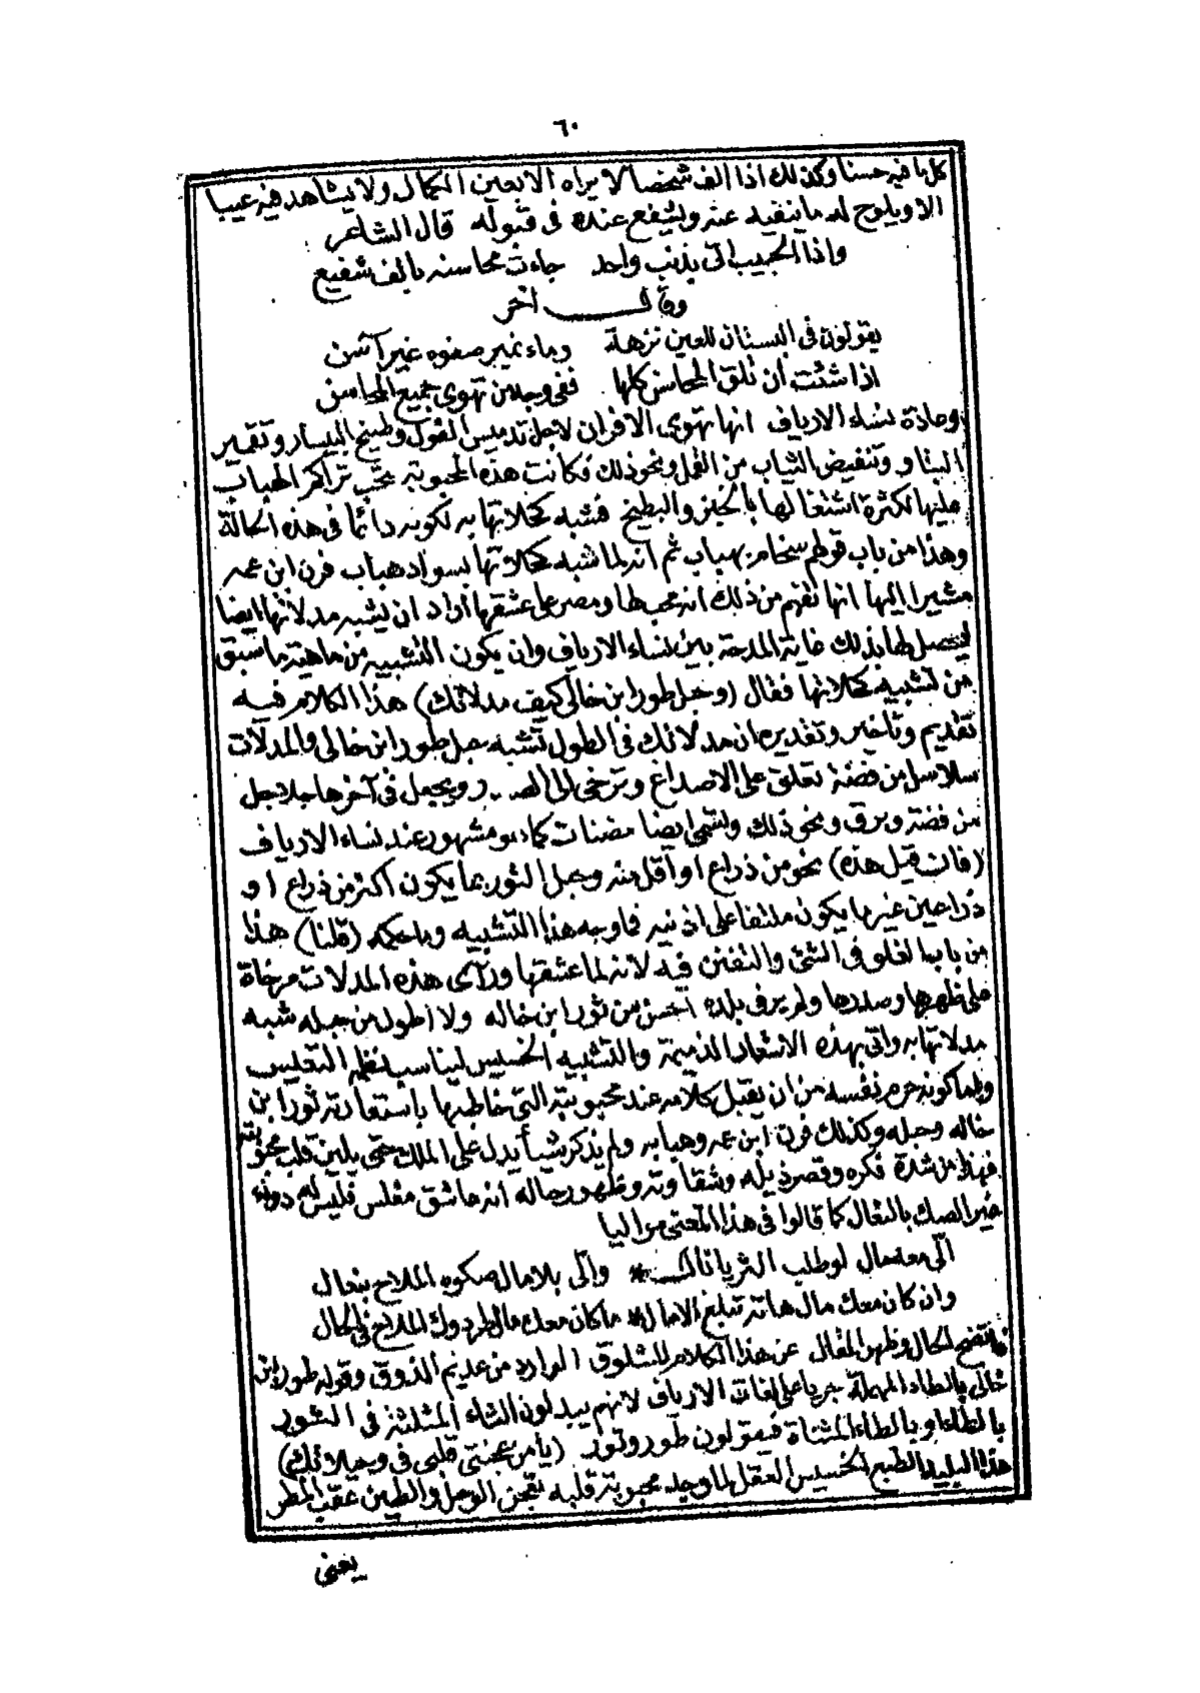 ٦٠
كل ما فيه حسنا وكذلك اذا الف شخصا لا يراه الا بعين الكمال ولا يشاهد فيه عيبا
الا ويلوح له ما ينفيه عنه ويشفع عنده فى قبوله قال الشاعر
واذا الحبيب اتى بذنب واحد جاءت محاسنه بالف شفيع
وقال اخر
يقولون فى البستان للعين نزهة وماء نمير صفوه غير آسن
اذا شئت ان تلقى المحاسن كلها ففى وجه من تهوى جميع المحاسن
وعادة نساء الارياف انها تهوى الافران لاجل تدميس الفول وطبخ البيسار وتقمير
البتاو وتنفيض الثياب من القمل ونحو ذلك فكانت هذه المحبوبة تراكم الهباب
عليها لكثرة اشتغالها بالخبز والبطيخ فشبه كحلاتها به لكونه دائما فى هذه الحالة
وهذا من باب قولهم سخام بهباب ثم انه لما شبه كحلاتها بسواد هباب فرن ابن عمه
مشيرا اليها انها تفهم من ذلك انه محب لها ومصر على عشقها اراد ان يشبه مدلاتها ايضا
ليحصل لها بذلك غاية المدحة بين نساء الارياف وان يكون التشبيه من ماهية ما سبق
من تشبيه كحلاتها فقال (وحبل طور ابن خالى كيف مدلاتك) هذا الكلام فيه
تقديم وتأخير وتقديره ان مدلاتك فى الطول تشبه حبل طور ابن خالى والمدلات
سلاسل من فضة تعلق على الاصداغ وترخى الى الصدر ويجعل فى آخرها جلاجل
من فضة وبرق ونحو ذلك وتسمى ايضا مضنات كما هو مشهور عند نساء الارياف
(فان قيل هذه) نحو من ذراع او اقل منه وحبل الثور بما يكون اكثر من ذراع او
ذراعين غير ما يكون ملتفا على اذنيه فما وجه هذا التشبيه وما حكمه (قلنا) هذا
من باب الغلو فى الشئ والتفنن فيه لانه لما عشقها ورآى هذه المدلات مرخاة
على ظهرها وصدرها ولم ير فى بلده احسن من ثور ابن خاله ولا اطول من حبله شبه
مدلاتها به واتى بهذه الاشعار الذميمة والتشبيه الخسيس ليناسب نظمه التعليس
واما كونه حرم نفسه من ان يقبل كلامه عند محبوبته التى خاطبها باستعارته ثور ابن
خاله وحبله وكذلك فرن ابن عمه وهبابه ولم يذكر شيأ يدل على الملك حتى يلين قلب محبوبته
فهذا من شدة فكره وقصر ذيله وشقاوته وظهور حاله انه عاشق مفلس فليس له دواء
غير الصك بالنعال كما قالوا فى هذا المعنى مواليا
الى معه مال لو طلب الثريا نال * والى بلا مال صكوه الملاح بنعال
وان كان معك مال هاته تبلغ الامال * ما كان معك مال طردوك الملاح فى الحال
فاتضح الحال وظهر المقال عن هذا الكلام المشلوق الوارد من عديم الذوق وقوله طور ابن
خالى بالطاء المهملة جريا على لغات الارياف لانهم يبدلون الثاء المثلثة فى الثور
بالطاء او بالطاء المثناة فيقولون طور وتور (يا من عجنتى قلبى فى وحيلاتك)
هذا البليد الطبع الخسيس العقل لما وجد محبوبته قلبه تعجن الوحل والطين عقب المطر
يعنى